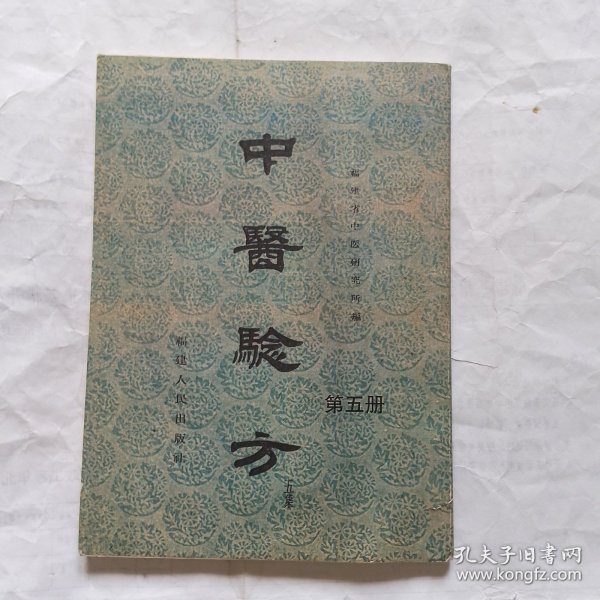 福建省中医研究所编
中醫驗方
五集
第五册
福建人民出版社
孔夫子旧书网
www.kongfz.com